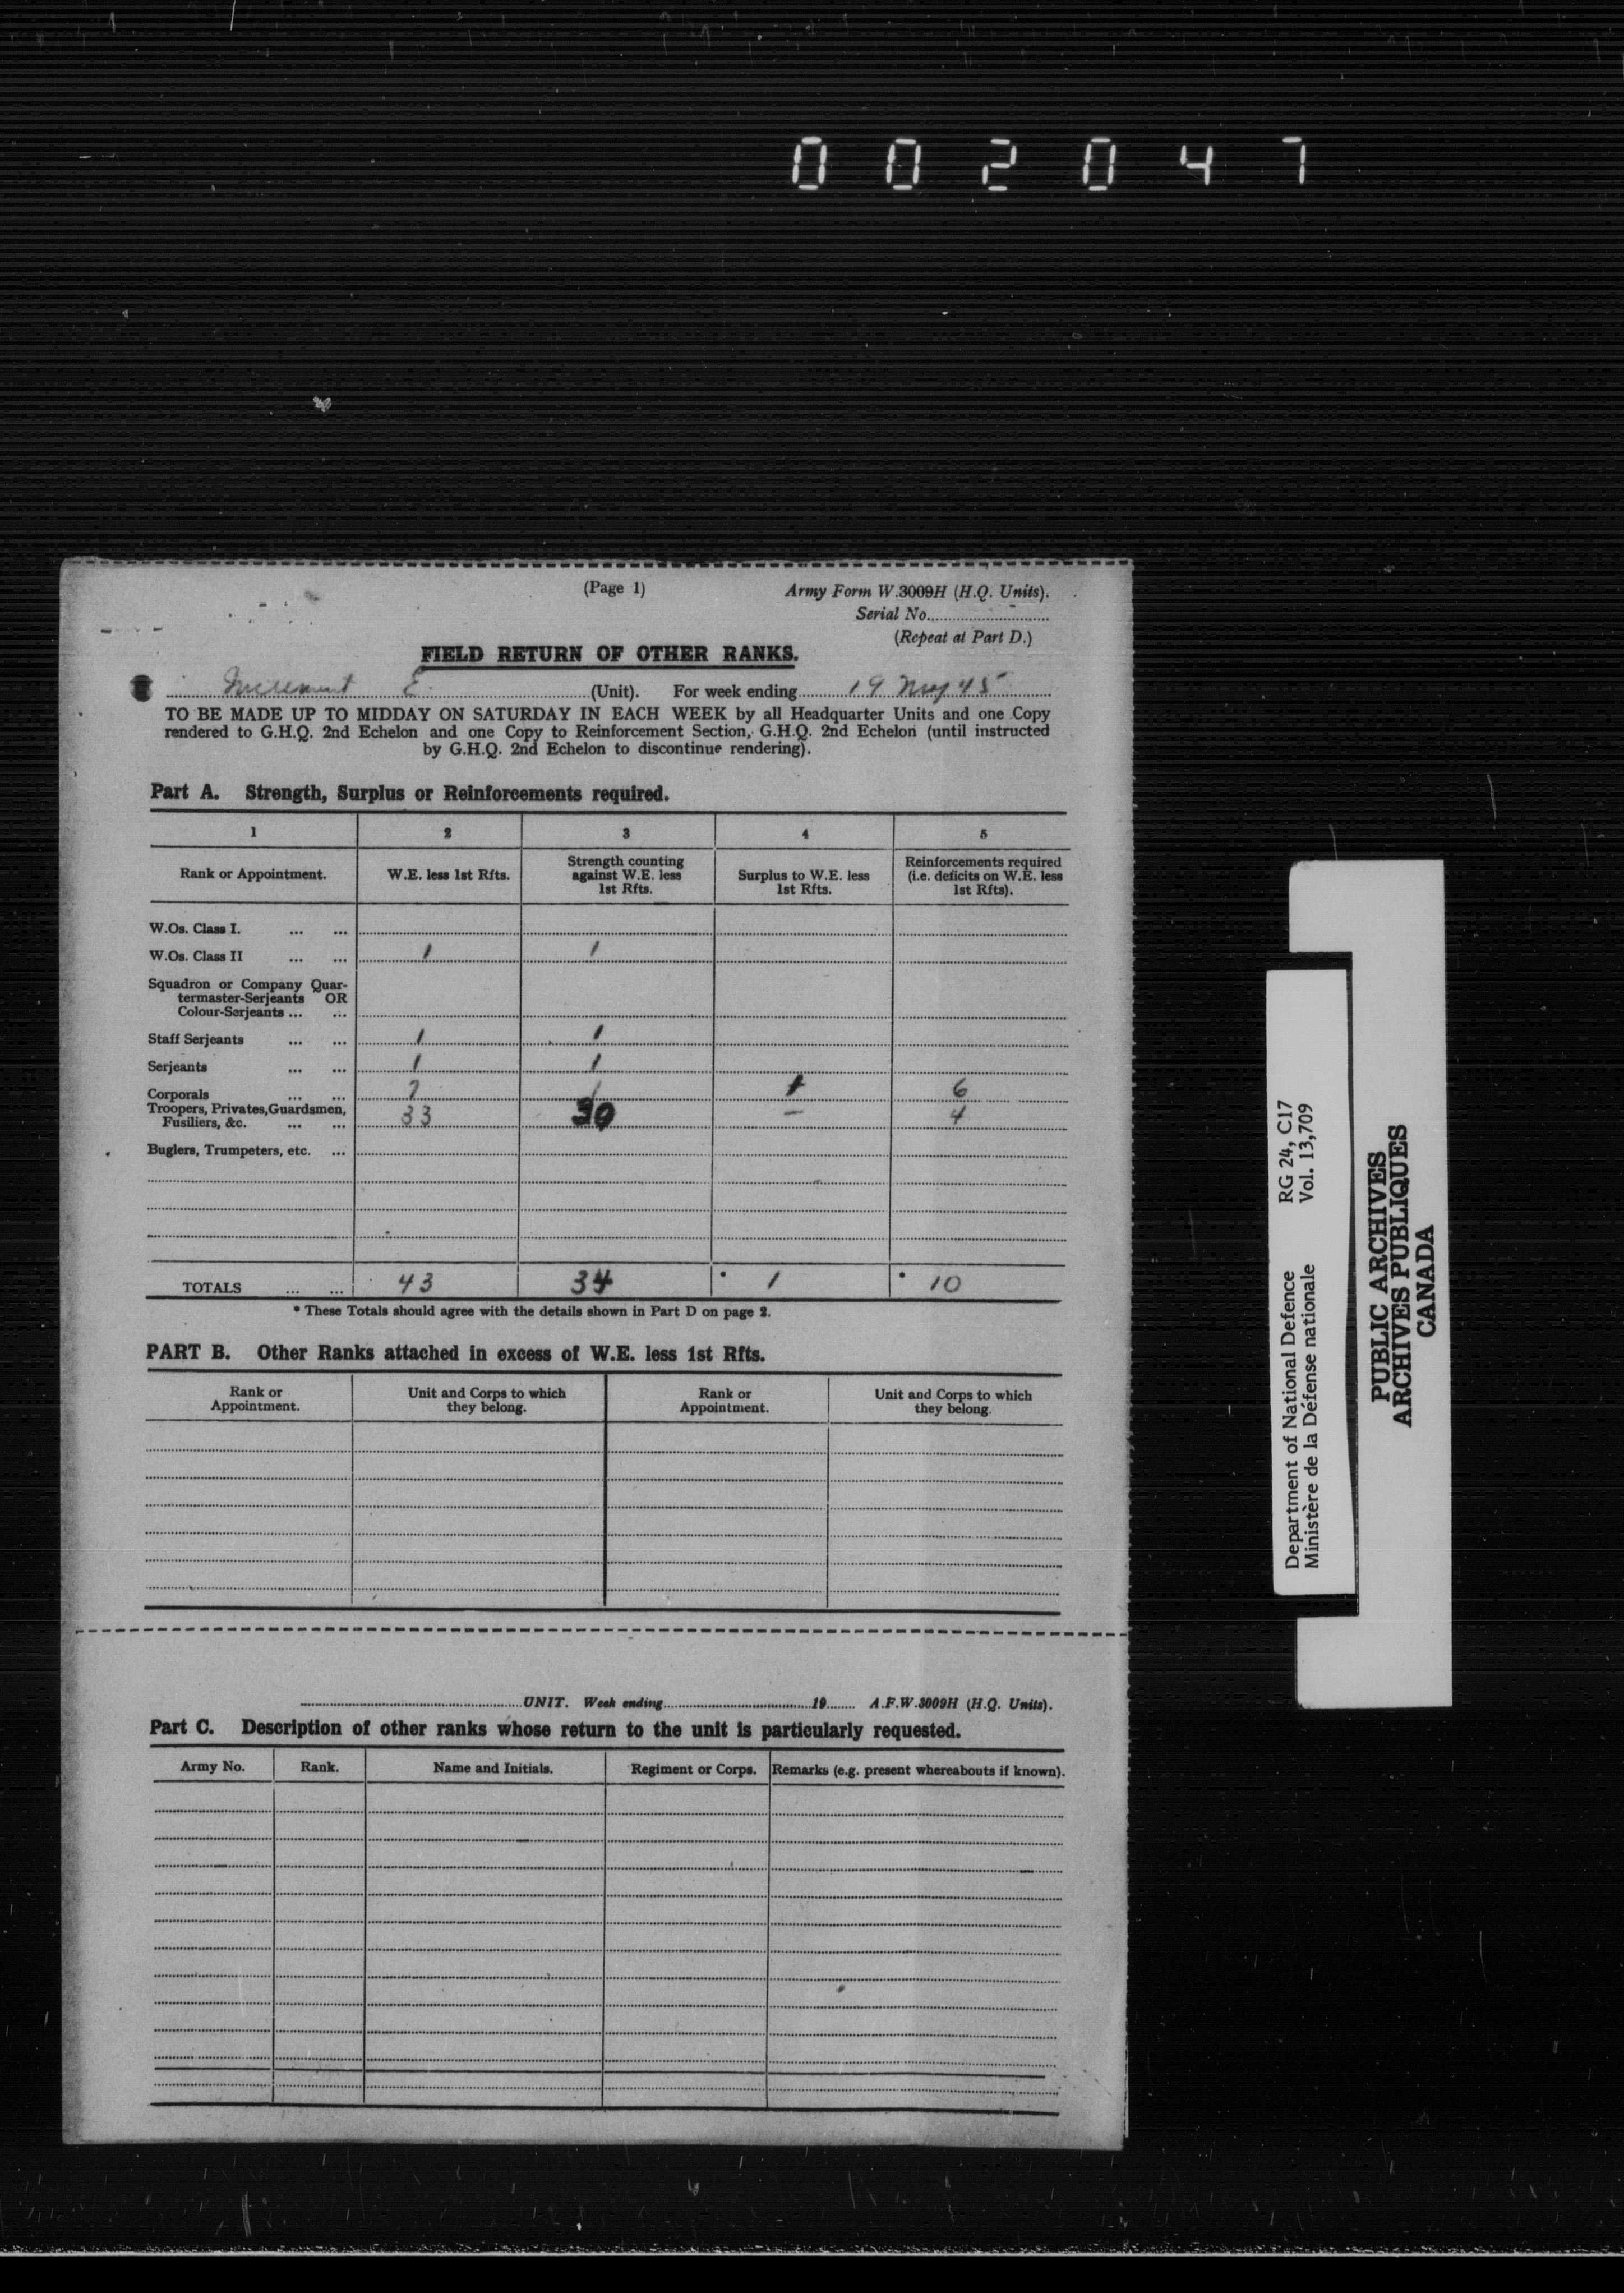 002047
(Page 1)
Army Form W.3009H (H.Q. Units).
Serial No.
(Repeat at Part D.)
FIELD RETURN OF OTHER RANKS.
Increment E. (Unit). For week ending 19 May 45
TO BE MADE UP TO MIDDAY ON SATURDAY IN EACH WEEK by all Headquarter Units and one Copy
rendered to G.H.Q. 2nd Echelon and one Copy to Reinforcement Section, G.H.Q. 2nd Echelon (until instructed
by G.H.Q. 2nd Echelon to discontinue rendering).
Part A. Strength, Surplus or Reinforcements required.
1 2 3 4 5
Rank or Appointment. W.E. less 1st Rfts. Strength counting against W.E. less 1st Rfts. Surplus to W.E. less 1st Rfts. Reinforcements required (i.e. deficits on W.E. less 1st Rfts).
W.Os. Class I. ... ...
W.Os. Class II ... ... 1 1
Squadron or Company Quar-
termaster-Serjeants OR
Colour-Serjeants ... ...
Staff Serjeants ... ... 1 1
Serjeants ... ... 1 1
Corporals ... ... 7 1 1 6
Troopers, Privates, Guardsmen,
Fusiliers, &c. ... ... 33 30 – 4
Buglers, Trumpeters, etc. ...
TOTALS ... ... 43 34 * 1 * 10
* These Totals should agree with the details shown in Part D on page 2.
PART B. Other Ranks attached in excess of W.E. less 1st Rfts.
Rank or Appointment. Unit and Corps to which they belong. Rank or Appointment. Unit and Corps to which they belong.
UNIT. Week ending 19 A.F.W.3009H (H.Q. Units).
Part C. Description of other ranks whose return to the unit is particularly requested.
Army No. Rank. Name and Initials. Regiment or Corps. Remarks (e.g. present whereabouts if known).
Department of National Defence RG 24, C17
Ministère de la Défense nationale Vol. 13,709
PUBLIC ARCHIVES
ARCHIVES PUBLIQUES
CANADA